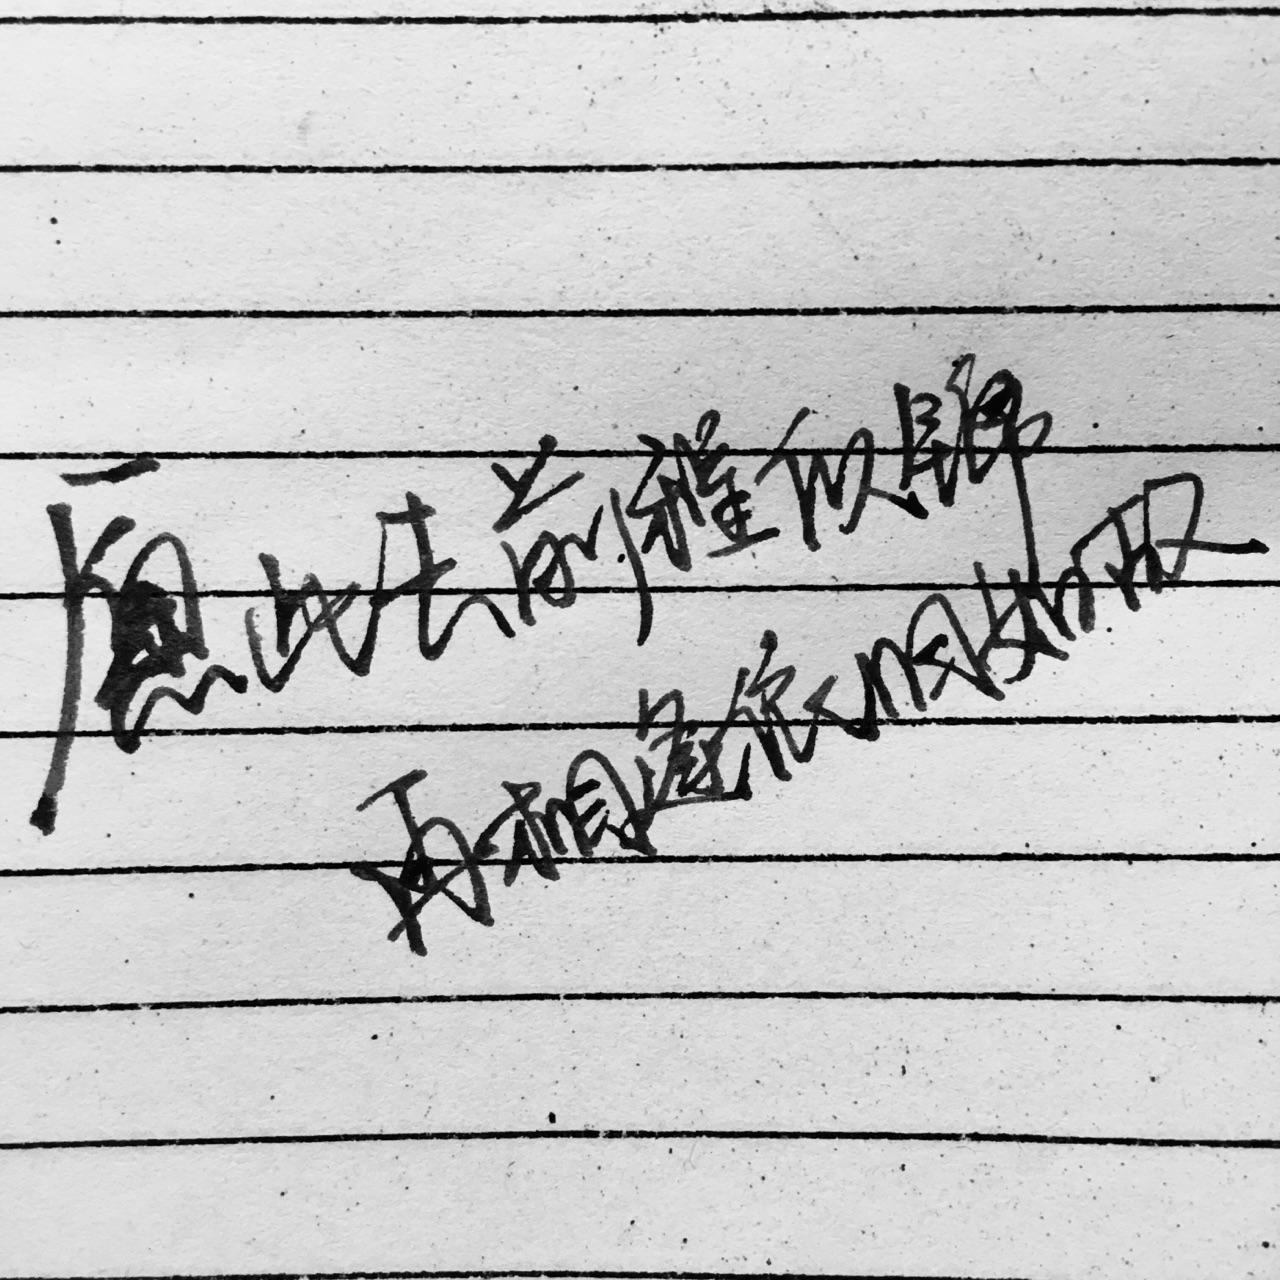 愿此去前程似锦
再相逢依旧风如故